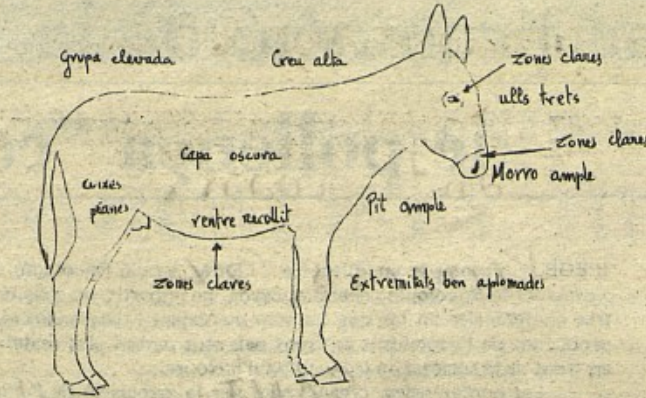 Grupa elevada
Creu alta
zones clares
ulls trets
zones clares
Morro ample
Capa oscura
cuixes
planes
ventre recollit
Pit ample
zones clares
Extremitats ben aplomades